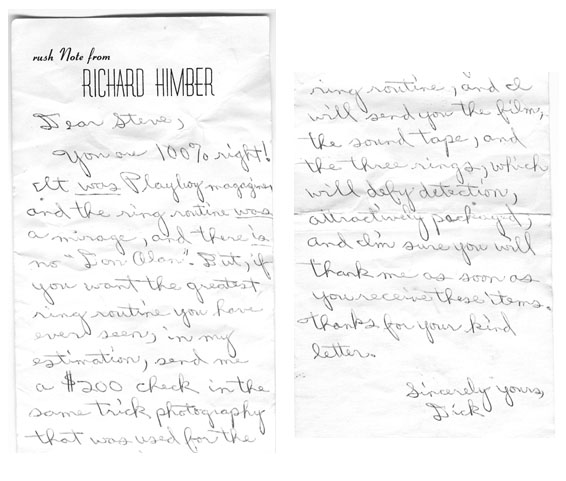 rush Note from
RICHARD HIMBER
Dear Steve,
You are 100% right!
It was Playboy magazine
and the ring routine was
a mirage, and there is
no "Don Alan". But, if
you want the greatest
ring routine you have
ever seen, in my
estimation, send me
a $200 check in the
same trick photography
that was used for the
ring routine, and I
will send you the film,
the sound tape, and
the three rings, which
will defy detection,
attractively packaged,
and I'm sure you will
thank me as soon as
you receive these items.
Thanks for your kind
letter.
Sincerely yours,
Dick